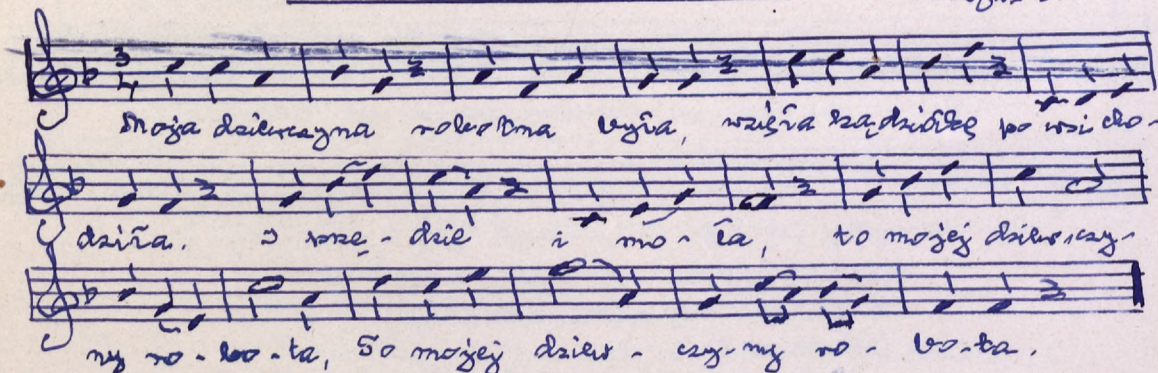 3
4
Moja dziewczyna robotna była, wzięła kądziółkę po wsi cho-
dziła. I przę-dzie i mo-ta, to mojej dziewczy-
ny ro-bo-ta, to mojej dziew-czy-ny ro-bo-ta.